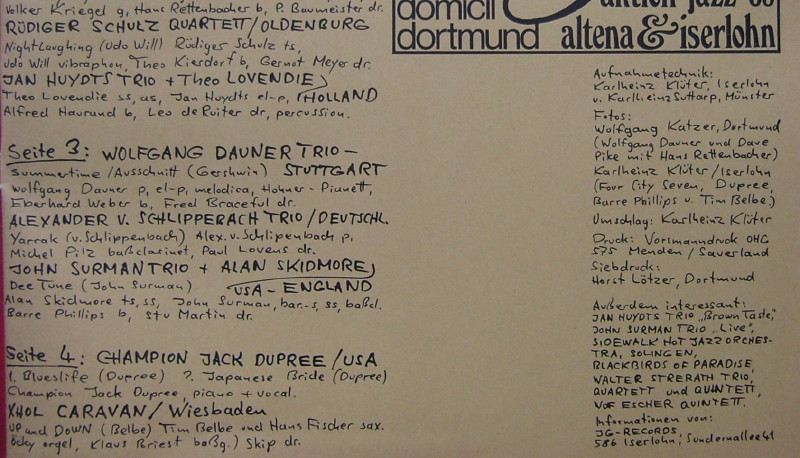 Volker Kriegel g, Hans Rettenbacher b, P. Baumeister dr.
RÜDIGER SCHULZ QUARTETT/OLDENBURG
NightLaughing (Udo Will) Rüdiger Schulz ts,
Udo Will vibraphon, Theo Kiesdorf b, Gernot Meyer dr.
JAN HUYDTS TRIO + THEO LOVENDIE
Theo Lovendie ss, as, Jan Huydts el-p, HOLLAND
Alfred Haurand b, Leo de Ruiter dr, percussion.
Seite 3: WOLFGANG DAUNER TRIO -
Summertime/Ausschnitt (Gershwin) STUTTGART
Wolfgang Dauner p, el-p, melodica, Hohner-Pianett,
Eberhard Weber b, Fred Braceful dr.
ALEXANDER V. SCHLIPPEBACH TRIO/DEUTSCHL.
Yarrak (v. Schlippenbach) Alex. v. Schlipenbach p,
Michel Pilz baßclarinet, Paul Lovens dr.
JOHN SURMAN TRIO + ALAN SKIDMORE
Dee Tune (John Surman) USA - ENGLAND
Alan Skidmore ts, ss, John Surman, bar.-s, ss, baßcl.
Barre Phillips b, Stu Martin dr.
Seite 4: CHAMPION JACK DUPREE/USA
1. Blueslife (Dupree) 2. Japanese Bride (Dupree)
Champion Jack Dupree, piano + vocal.
XHOL CARAVAN/Wiesbaden
UP and DOWN (Belbe) Tim Belbe und Hans Fischer sax.
Öcky orgel, Klaus Briest baßg.) Skip dr.
domicil
dortmund
aktion jazz
altena & iserlohn
Aufnahmetechnik:
Karlheinz Klüter, Iserlohn
v. Karlheinz Suttarp, Münster
Fotos:
Wolfgang Katzer, Dortmund
(Wolfgang Dauner und Dave
Pike mit Hans Rettenbacher)
Karlheinz Klüter/Iserlohn
(Four City Seven, Dupree,
Barre Phillips u. Tim Belbe.)
Umschlag: Karlheinz Klüter
Druck: Vorlmanndruck OHG
575 Menden/Sauerland
Siebdruck:
Horst Lötzer, Dortmund
Außerdem interessant:
JAN HUYDTS TRIO „Brown Taste,"
JOHN SURMAN TRIO „Live",
SIDEWALK HOT JAZZ ORCHES-
TRA, SOLINGEN,
BLACKBIRDS OF PARADISE,
WALTER STRERATH TRIO,
QUARTETT und QUINTETT,
VOF ESCHER QUINTETT.
Informationen von:
JG-RECORDS,
586 Iserlohn, Sundernallee 41